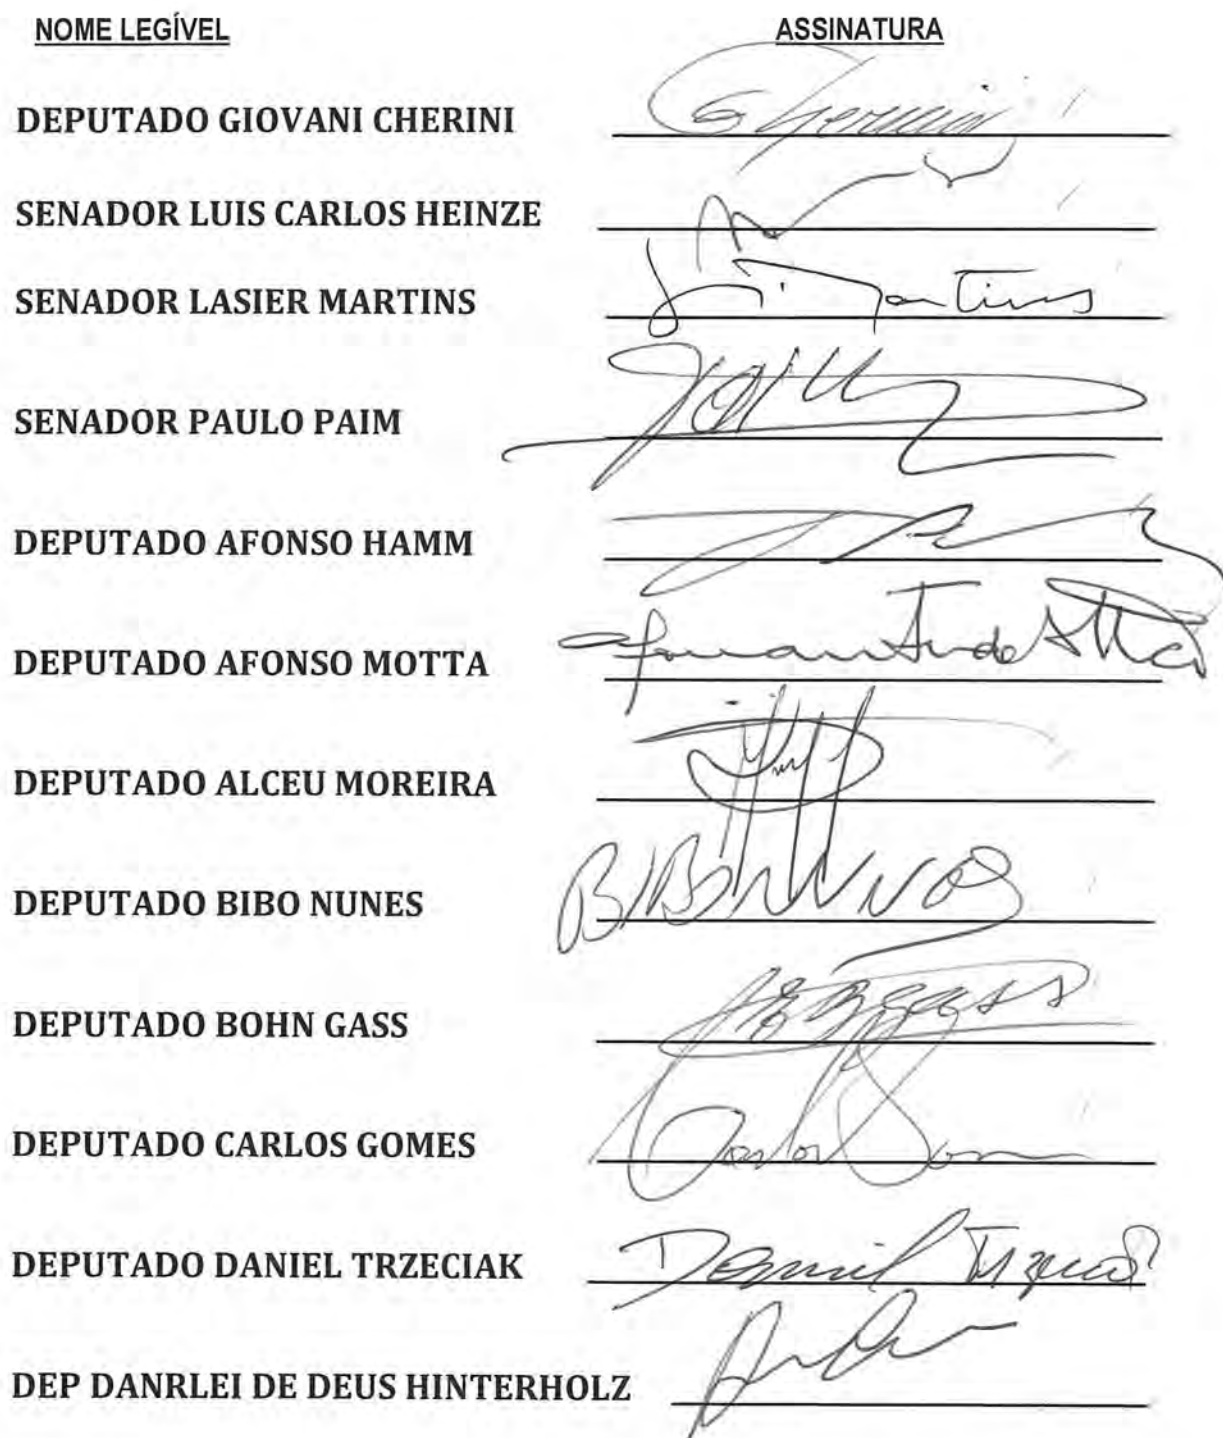 NOME LEGÍVEL ASSINATURA
DEPUTADO GIOVANI CHERINI GCherini
SENADOR LUIS CARLOS HEINZE
SENADOR LASIER MARTINS Martins
SENADOR PAULO PAIM
DEPUTADO AFONSO HAMM
DEPUTADO AFONSO MOTTA
DEPUTADO ALCEU MOREIRA
DEPUTADO BIBO NUNES BIBO NUNES
DEPUTADO BOHN GASS
DEPUTADO CARLOS GOMES Carlos Gomes
DEPUTADO DANIEL TRZECIAK Daniel Trzeciak
DEP DANRLEI DE DEUS HINTERHOLZ